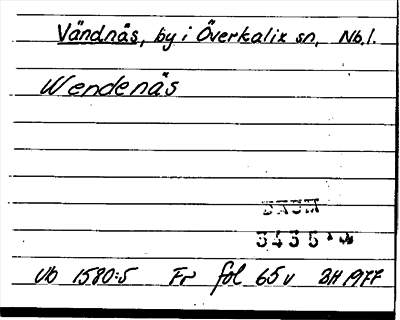 Vändnäs, by i Överkalix sn, Nb.l.
Wendenäs
DAUM
3435
Vb 1580:5 Fr fol 65v BH 1977